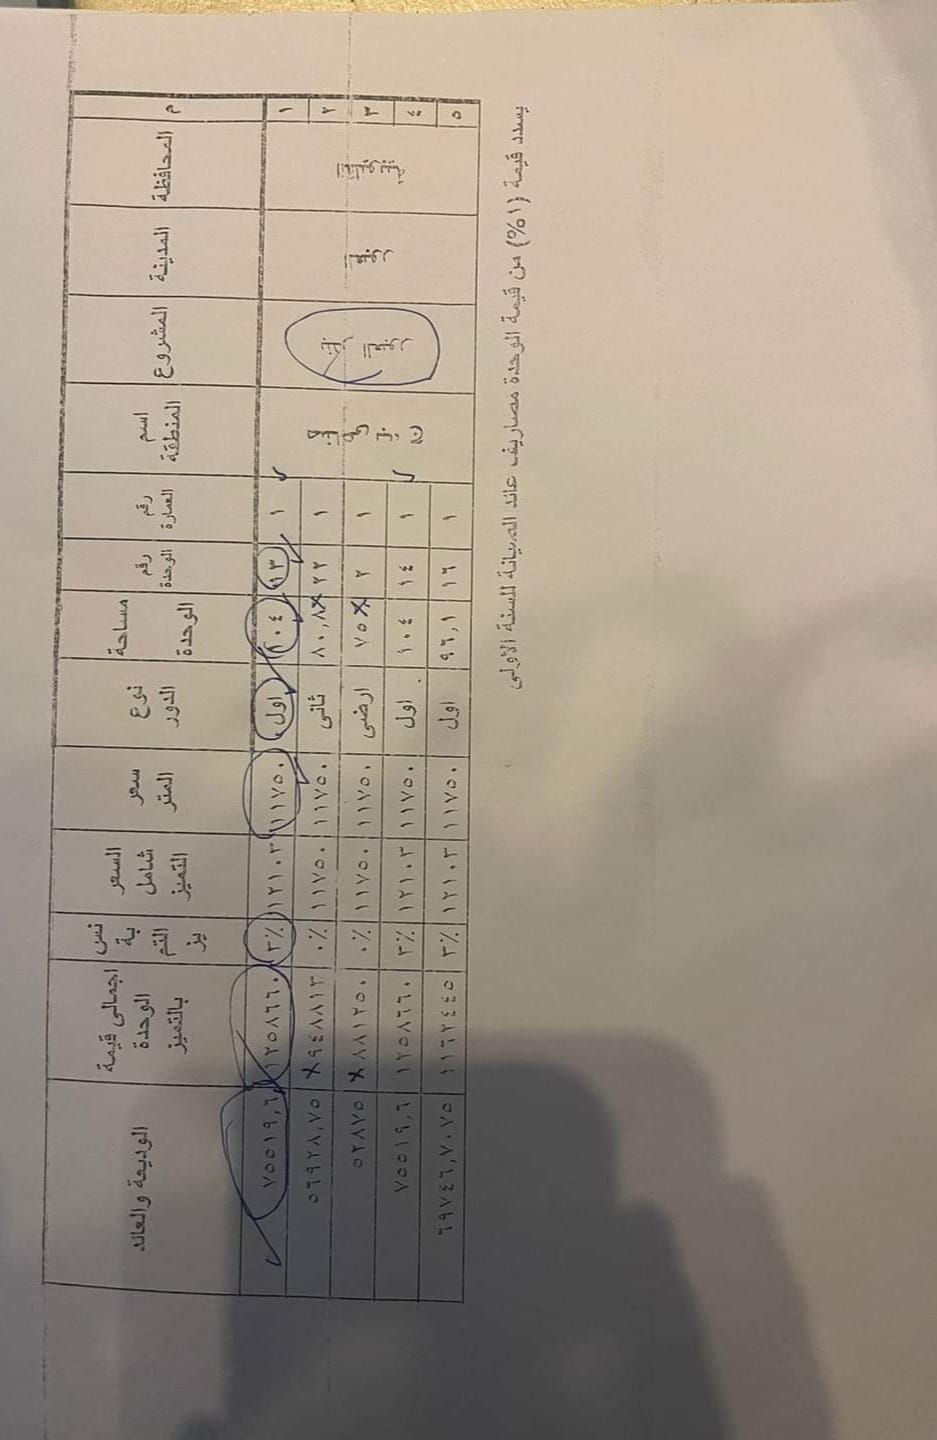 م المحافظة المدينة المشروع اسم المنطقة رقم العمارة رقم الوحدة مساحة الوحدة نوع الدور سعر المتر السعر شامل التميز نسبة التميز اجمالى قيمة الوحدة بالتميز الوديعة والعائد
١ ١ ١٣ ١٠٤ اول ١١٧٥٠ ١٢١٠٣ ٣٪ ١٢٥٨٦٦٠ ٧٥٥١٩,٦
٢ ١ ٢٢ ٨٠,٨ ثانى ١١٧٥٠ ١١٧٥٠ ٠٪ ٩٤٨٨١٣ ٥٦٩٢٨,٧٥
٣ ١ ٢ ٧٥ ارضى ١١٧٥٠ ١١٧٥٠ ٠٪ ٨٨١٢٥٠ ٥٢٨٧٥
٤ ١ ١٤ ١٠٤ اول ١١٧٥٠ ١٢١٠٣ ٣٪ ١٢٥٨٦٦٠ ٧٥٥١٩,٦
٥ ١ ١٦ ٩٦,١ اول ١١٧٥٠ ١٢١٠٣ ٣٪ ١١٦٢٤٤٥ ٦٩٧٤٦,٧٠٧٥
يسدد قيمة (١%) من قيمة الوحدة مصاريف عائد الصيانة للسنة الاولى